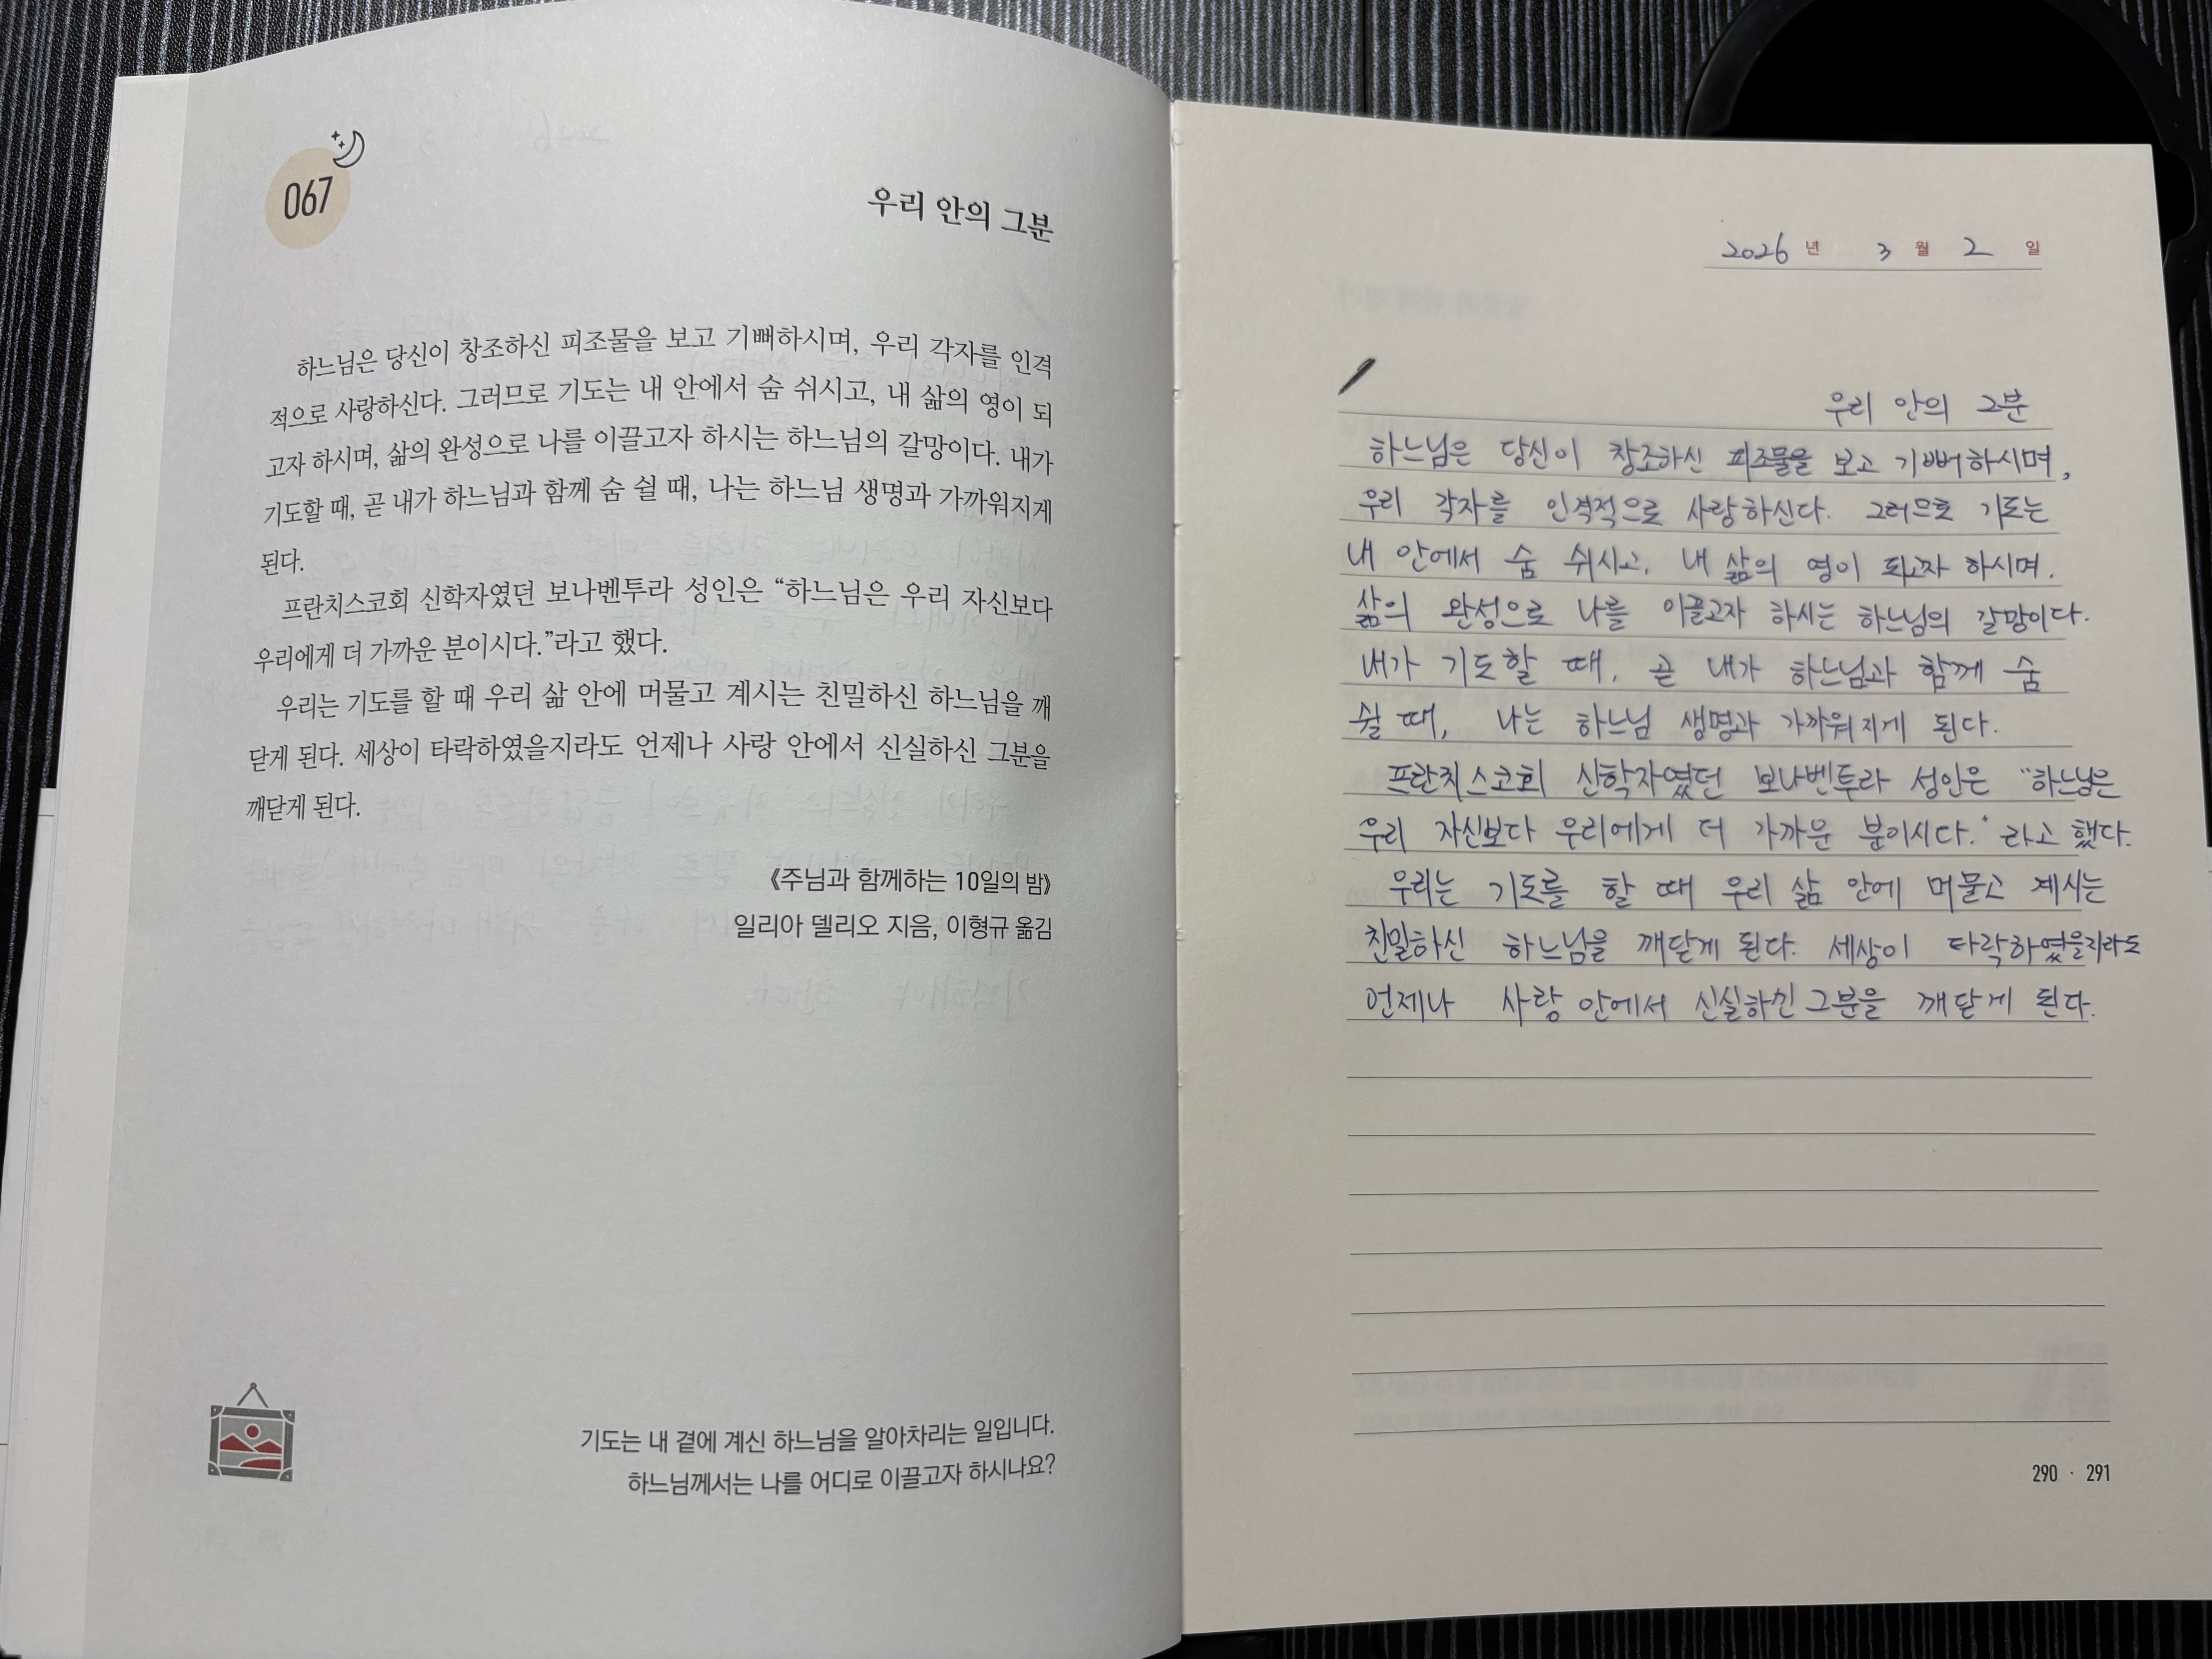 067
우리 안의 그분
하느님은 당신이 창조하신 피조물을 보고 기뻐하시며, 우리 각자를 인격
적으로 사랑하신다. 그러므로 기도는 내 안에서 숨 쉬시고, 내 삶의 영이 되
고자 하시며, 삶의 완성으로 나를 이끌고자 하시는 하느님의 갈망이다. 내가
기도할 때, 곧 내가 하느님과 함께 숨 쉴 때, 나는 하느님 생명과 가까워지게
된다.
프란치스코회 신학자였던 보나벤투라 성인은 “하느님은 우리 자신보다
우리에게 더 가까운 분이시다.”라고 했다.
우리는 기도를 할 때 우리 삶 안에 머물고 계시는 친밀하신 하느님을 깨
닫게 된다. 세상이 타락하였을지라도 언제나 사랑 안에서 신실하신 그분을
깨닫게 된다.
《주님과 함께하는 10일의 밤》
일리아 델리오 지음, 이형규 옮김
기도는 내 곁에 계신 하느님을 알아차리는 일입니다.
하느님께서는 나를 어디로 이끌고자 하시나요?
2026 년 3 월 2 일
우리 안의 그분
하느님은 당신이 창조하신 피조물을 보고 기뻐하시며,
우리 각자를 인격적으로 사랑하신다. 그러므로 기도는
내 안에서 숨 쉬시고, 내 삶의 영이 되고자 하시며.
삶의 완성으로 나를 이끌고자 하시는 하느님의 갈망이다.
내가 기도할 때, 곧 내가 하느님과 함께 숨
쉴 때, 나는 하느님 생명과 가까워지게 된다.
프란치스코회 신학자였던 보나벤투라 성인은 “하느님은
우리 자신보다 우리에게 더 가까운 분이시다.” 라고 했다.
우리는 기도를 할 때 우리 삶 안에 머물고 계시는
친밀하신 하느님을 깨닫게 된다. 세상이 타락하였을지라도
언제나 사랑 안에서 신실하신 그분을 깨닫게 된다.
290 · 291